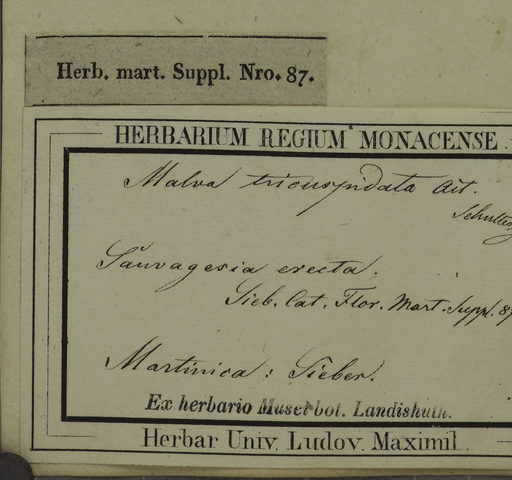 Herb. mart. Suppl. Nro. 87.
HERBARIUM REGIUM MONACENSE.
Malva tricuspidata Ait.
Schultes
Sauvagesia erecta.
Sieb. Cat. Flor. Mart. Suppl. 87
Martinica: Sieber.
Ex herbario Musei bot. Landishuth.
Herbar Univ. Ludov. Maximil.